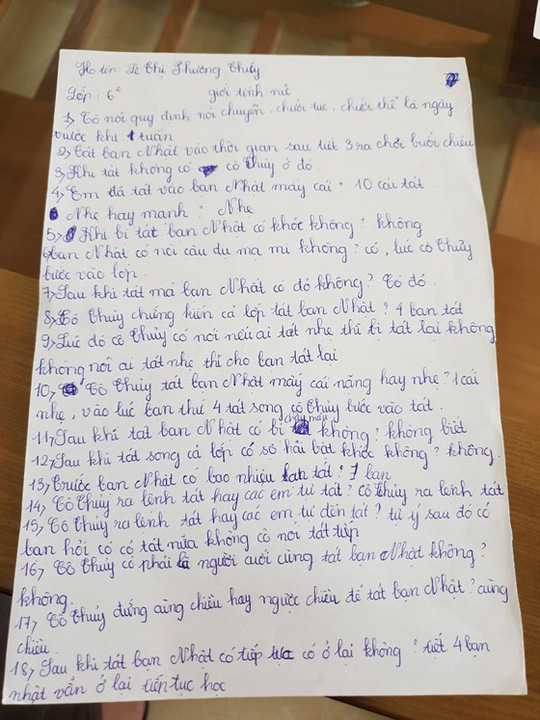 Họ tên: Lê Thị Phương Thủy
Lớp: 6² giới tính nữ
1, Cô nói quy định nói chuyện, chười tục, chười thề là ngày
trước khi 1 tuần
2, Tát bạn Nhật vào thời gian sau tiết 3 ra chơi buổi chiều
3, Khi tát không có cô Thủy ở đó.
4, Em đã tát vào bạn Nhật mấy cái? 10 cái tát.
Nhẹ hay mạnh? Nhẹ
5, Khi bị tát bạn Nhật có khóc không? không
6, bạn Nhật có nói câu du ma mi không? có, lúc cô Thủy
bước vào lớp.
7, Sau khi tát má bạn Nhật có đỏ không? Có đỏ
8, Cô Thủy chứng kiến cả lớp tát bạn Nhật? 4 bạn tát
9, Lúc đó cô Thủy có nói nếu ai tát nhẹ thì bị tát lại không
không nói ai tát nhẹ thì cho bạn tát lại
10, Cô Thủy tát bạn Nhật mấy cái nặng hay nhẹ? 1 cái
nhẹ, vào lúc bạn thứ 4 tát song cô Thủy bước vào tát.
11, Sau khi tát bạn Nhật có bị chảy máu không? không biết
12, Sau khi tát song cả lớp có sợ hãi bật khóc không? không.
13, Trước bạn Nhật có bao nhiêu bạn tát? 7 bạn
14, Cô Thủy ra lệnh tát hay các em tự tát? Cô Thủy ra lệnh tát
15, Cô Thủy ra lệnh tát hay các em tự đến tát? tự ý sau đó có
bạn hỏi cô có tát nữa không cô nói tát tiếp
16, Cô Thủy có phải là người cuối cùng tát bạn Nhật không?
không.
17, Cô Thủy đứng cùng chiều hay ngược chiều để tát bạn Nhật? cùng
chiều.
18, Sau khi tát bạn Nhật có tiếp tục có ở lại không? tiết 4 bạn
nhật vẫn ở lại tiếp tục học